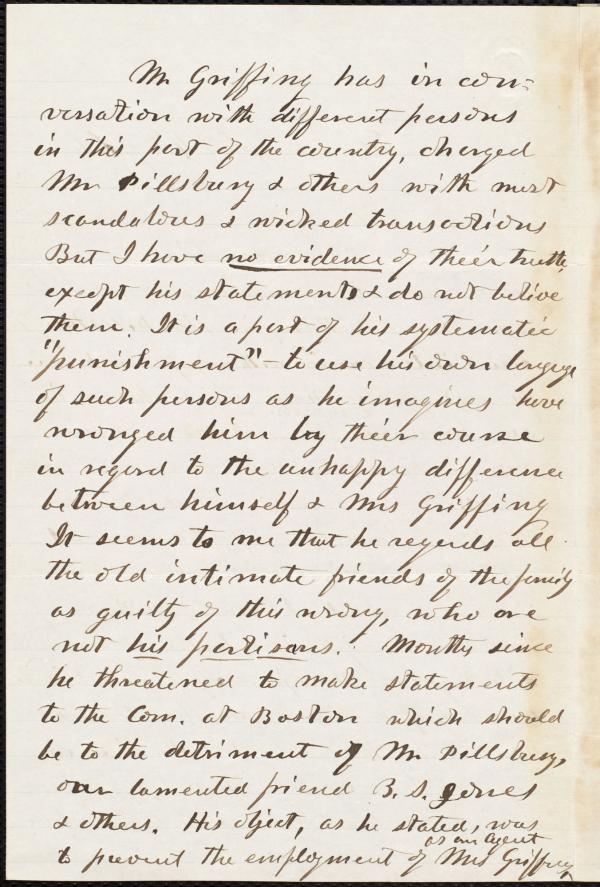 Mr Griffing has in con-
versation with different persons
in this part of the country, charged
Mr Pillsbury & others with most
scandalous & wicked transactions
But I have no evidence of theér truth
except his statements & do not belive
them. It is a part of his systematic
"punishment" - to use his own langage
of such persons as he imagines have
wronged him by theér course
in regard to the unhappy difference
between himself & Mrs Griffing
It seems to me that he regards all
the old intimate friends of the family
as guilty of this wrong, who are
not his partisans. Months since
he threatened to make statements
to the Com. at Boston which should
be to the detriment of Mr Pillsbury,
our lamented friend B. S. Jones
& others. His object, as he stated, was
as an agent
to prevent the employment of Mrs Griffing